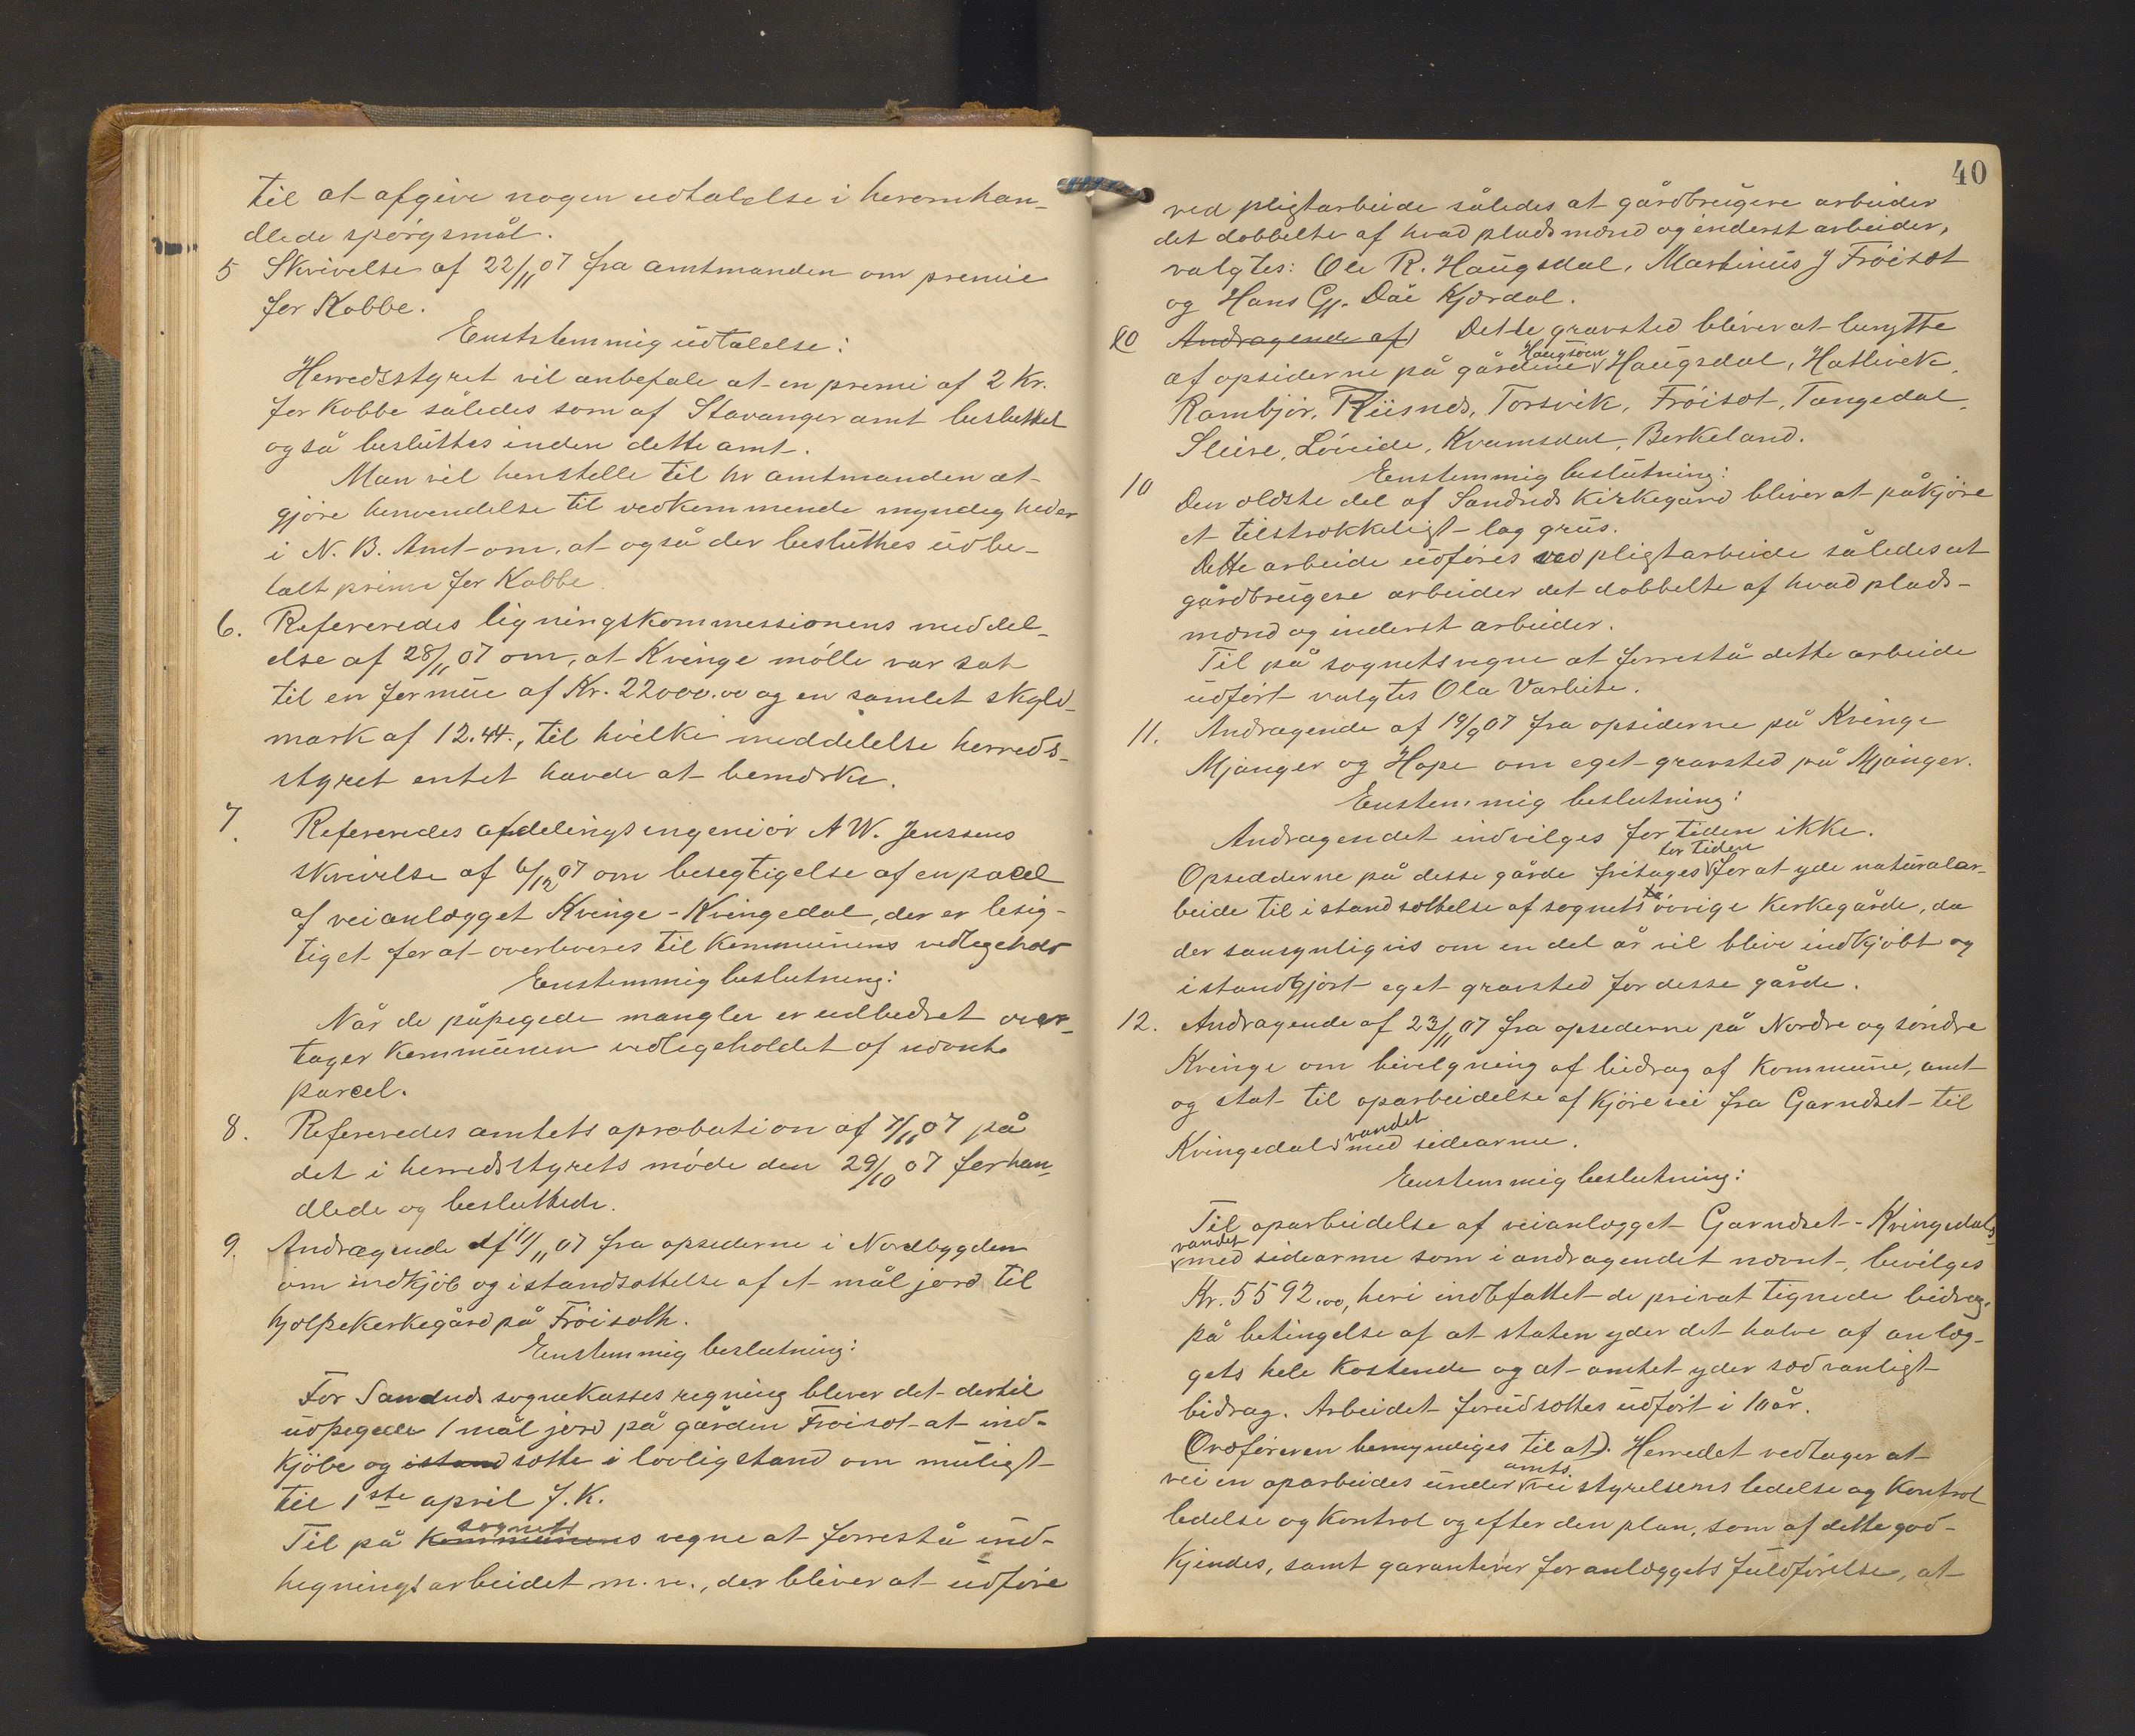 til at afgive nogen udtalelse i heromhan-
dlede spörgsmål.
5 Skrivelse af 22/11 07 fra amtmanden om premie
for Kobbe.
Enstslemmig udtalelse:
Herredsstyret vil anbefale at en premi af 2 Kr.
for Kobbe således som af Stavanger amt besluttet
også besluttes inden dette amt.
Man vil henstelle til hr amtmanden at
gjöre henvendelse til vedkommende myndigheder
i N. B. Amt om, at også der besluttes udbe-
talt primi for Kobbe.
6. Refereredes ligningskommessionens meddel-
else af 28/11 07 om, at Kvinge mölle var sat
til en formue af Kr. 22000.00 og en samlet skyld-
mark af 12.44., til hvilke meddelelse herreds-
styret entet havde at bemærke.
7. Refereredes afdelingsingeniör N W. Jenssens
skrivelse af 6/12 07 om besegtigelse af en pacel
af veianlægget Kvinge-Kvingedal, der er besig-
tiget for at overleveres til Kommunens vedlegehold
Enstemmig beslutning:
Når de påpegede mangler er udbedret over-
tager Kommunen vedligeholdet af nævnte
parcel.
8. Refereredes amtets aprobation af 7/11 07 på
det i herredsstyrets möde den 29/10 07 forhan-
dlede og besluttede.
9. Andragende af 11/11 07 fra opsederne i Nordbygden
om indkjöb og istandsættelse af et mål jord til
hjælpekerkegård på Fröiseth.
Eenstemmig beslutning:
For Sandnds sognekasses regning blever det dertil
udpegede 1 mål jord på gården Fröiset at ind-
kjöbe og istand sætte i lovlig stand om muligst
til 1ste april f. K.
sognets
Til på Kommunens vegne at forrestå ind-
hegningsarbeidet m. v., der bliver at udföre
40
ved pligtarbeide således at gårdbrugere arbeider
det dobbelte af hvad pladsmænd og inderst arbeider,
valgtes: Ole R. Haugsdal, Martinus J Fröiset
og Hans Gj. Daé Kjærdal.
10 Andragende af) Dette gravsted bliver at benytte
Haugsöen
af opsiderne på gårdene Haugsdal, Hatlevik,
Rambjör, Riisnes, Torsvik, Fröiset, Tangedal,
Sleire, Löveide, Kvamsdal, Berkeland.
Eenstemmig beslutning:
10 Den ældste del af Sandnes Kirkegård bliver at påkjöre
et tilstrækkeligt lag grus.
Dette arbeide udföres ved pligtarbeide således at
gårdbrugere arbeider det dobbelte af hvad plads-
mænd og inderst arbeider.
Til på sognets vegne at forrestå dette arbeide
udfört valgtes Ola Varbite.
11. Andragende af 19/9 07 fra opsiderne på Kvinge
Mjanger og Hope om eget gravsted på Mjanger.
Eenstemmig beslutning:
Andragendet indvilges for tiden ikke.
for tiden
Opsedderne på desse gårde fritages for at yde naturalar-
beide til istandsættelse af sognets övrige Kerkegårde, da
der sansynligvis om en del år vil blive indkjöbt og
istandgjort eget gravsted for desse gårde.
12. Andragende af 23/11 07 fra opsederne på Nordre og söndre
Kvinge om bivelgning af bidrag af Kommune, amt
og stat til oparbeidelse af Kjörevei fra Garndset til
vandet
Kvingedals med sidearme.
Eenstemmig beslutning:
Til oparbeidelse af veianlægget Garndset - Kvingedals-
vandet
med sidearme som i andragendet nævnt, bevilges
Kr. 5592.00, heri indbfattet de privat tignede bidrag,
på betingelse af at staten yder det halve af anlæg-
gets hele Kostende og at amtet yder sædvanligt
bidrag. Arbeidet forudsættes udfört i 10 år.
Ordföreren bemyndiges til at). Herredet vedtager at
amts
veien oparbeides under veistyrelsens ledelse og Kontrol
ledelse og Kontrol og efter den plan, som af dette god-
kjendes, samt garanterer for anlæggets fuldförelse, at